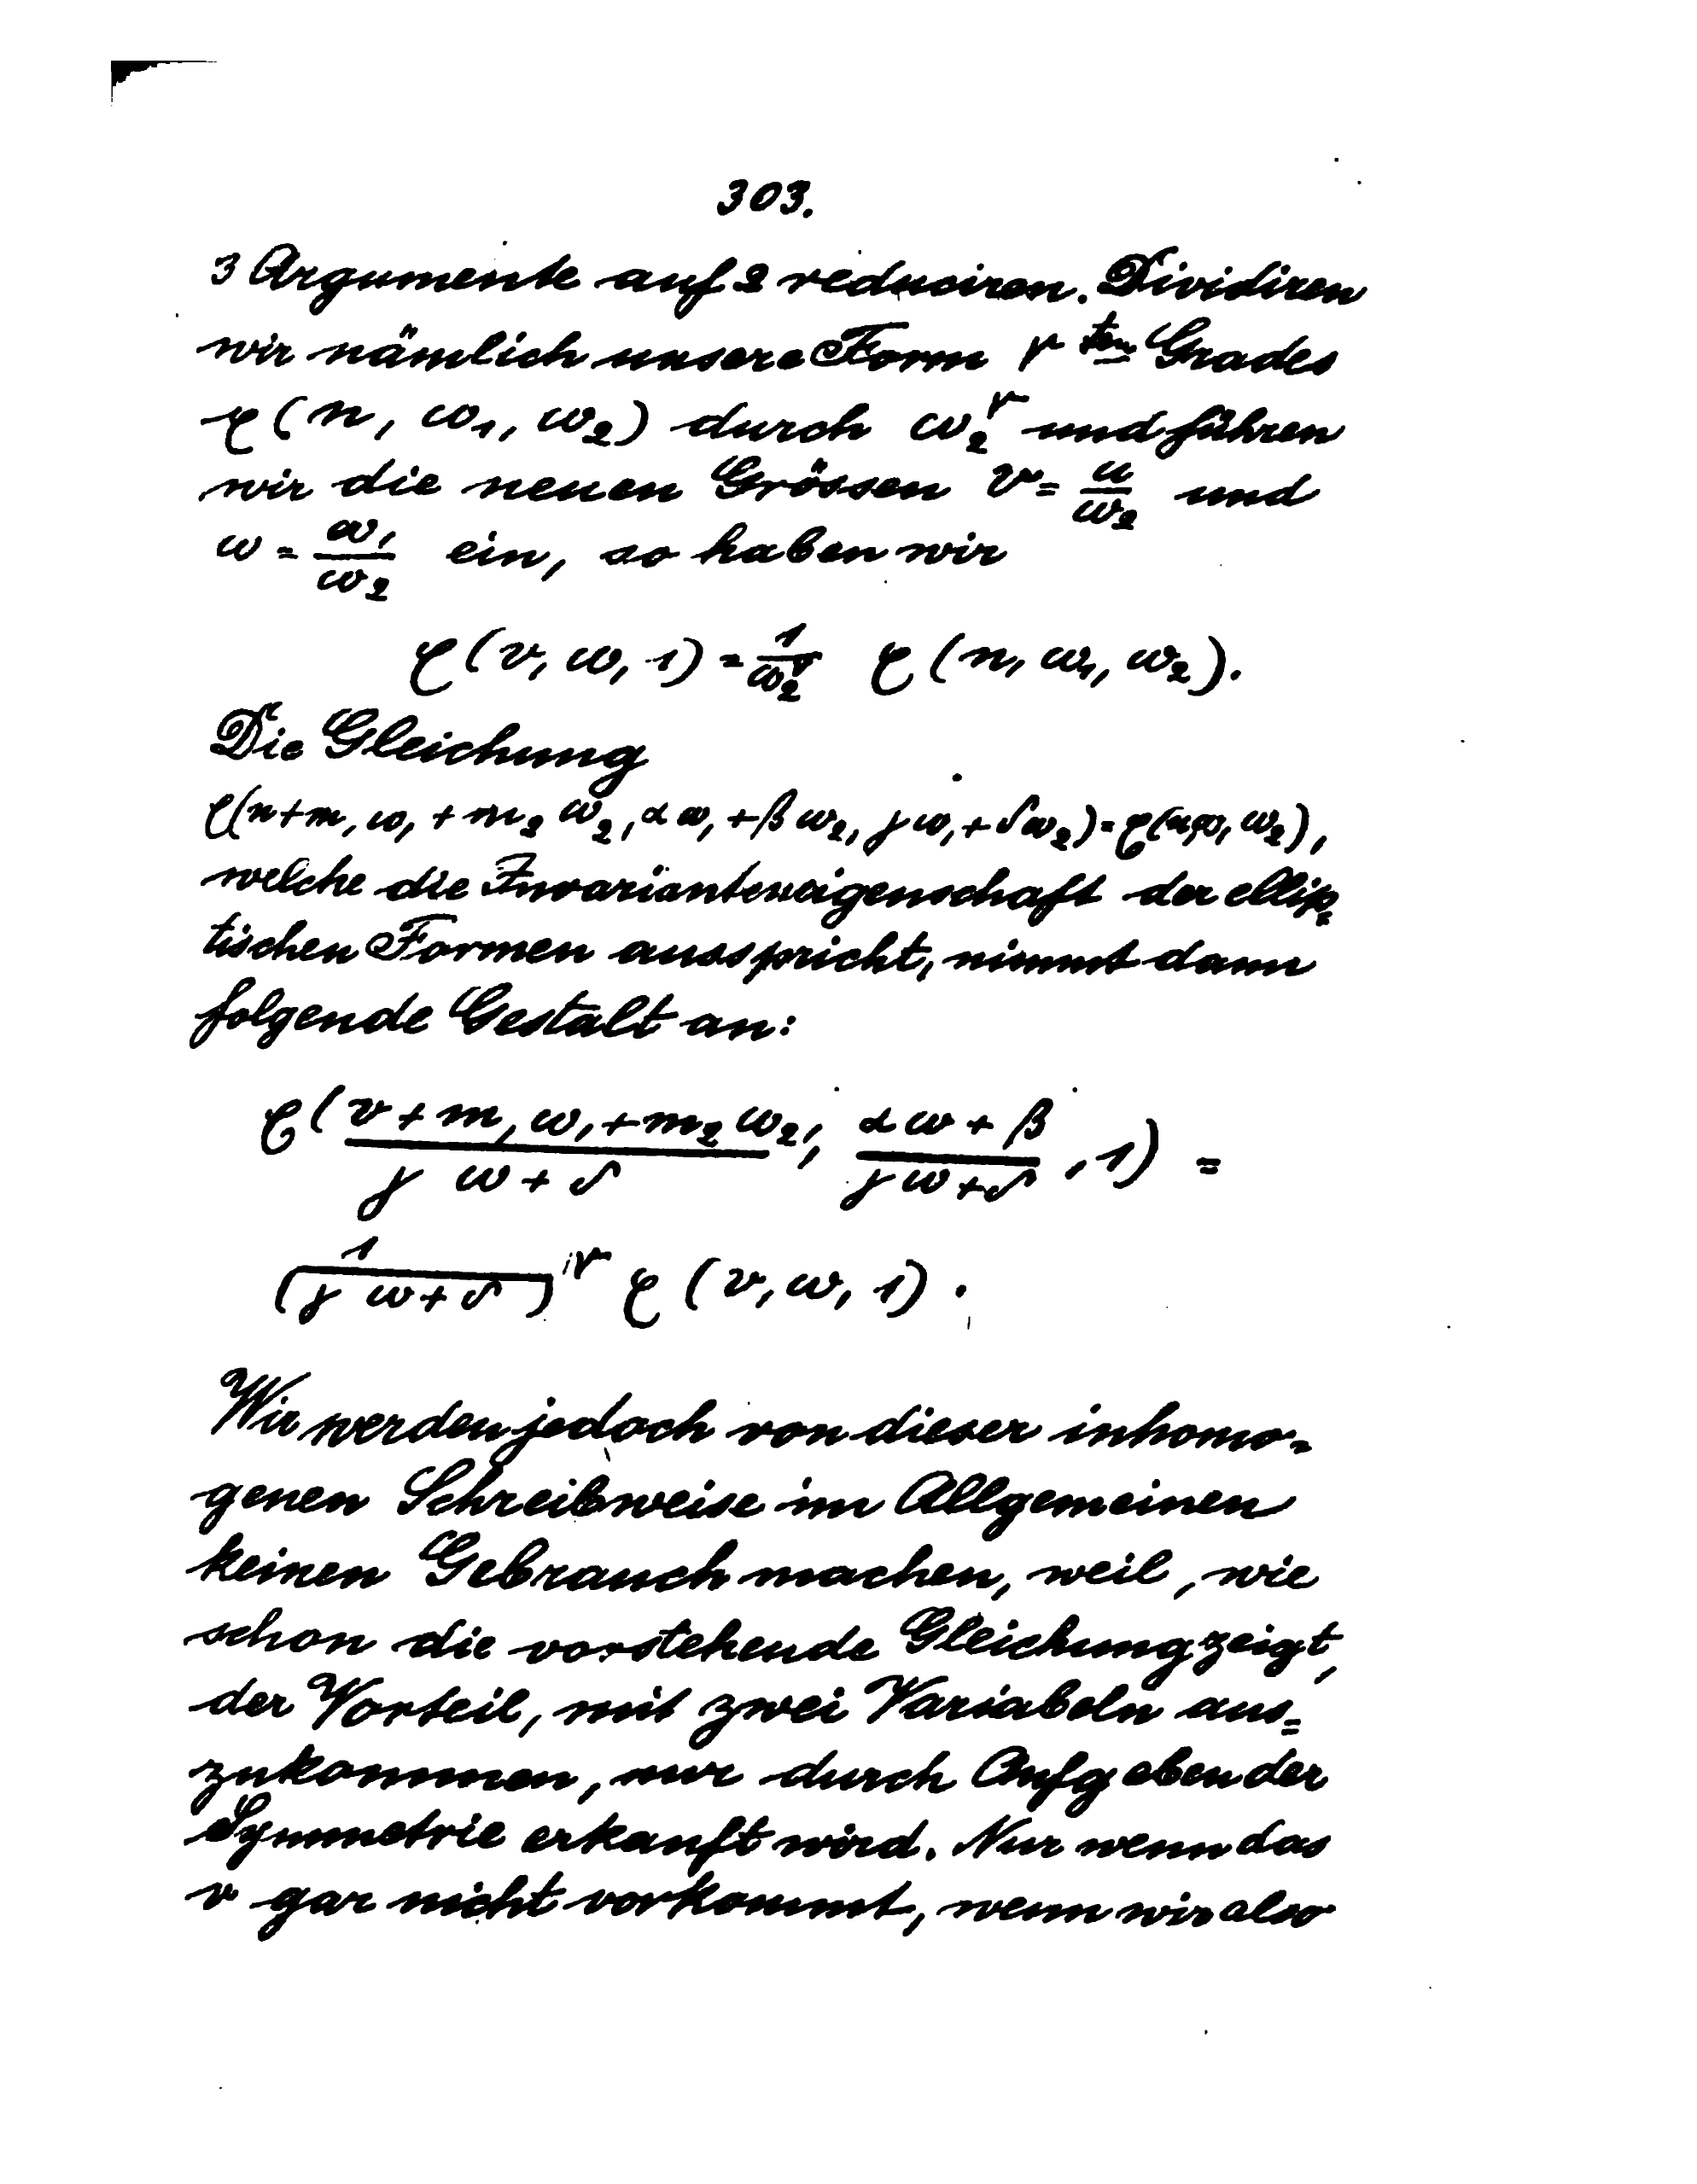 303.
3 Argumente auf 2 reduciren. Dividiren
wir nämlich unsere Form r ten Grades
φ(u, ω₁, ω₂) durch ω₂^r und führen
wir die neuen Grössen v = u/ω₂ und
ω = ω₁/ω₂ ein, so haben wir
φ(v, ω, 1) = 1/ω₂^r φ(u, ω₁, ω₂).
Die Gleichung
φ(u+m₁ω₁+m₂ω₂, αω₁+βω₂, γω₁+δω₂) = φ(u,ω₁,ω₂),
welche die Invarianteneigenschaft der ellip=
tischen Formen ausspricht, nimmt dann
folgende Gestalt an:
φ((v+m₁ω₁+m₂ω₂)/(γω+δ), (αω+β)/(γω+δ), 1) =
(1/(γω+δ))^r φ(v, ω, 1).
Wir werden jedoch von dieser inhomo=
genen Schreibweise im Allgemeinen
keinen Gebrauch machen, weil, wie
schon die vorstehende Gleichung zeigt,
der Vorteil, mit zwei Variabeln aus=
zukommen, nur durch Aufgeben der
Symmetrie erkauft wird. Nur wenn das
v gar nicht vorkommt, wenn wir also